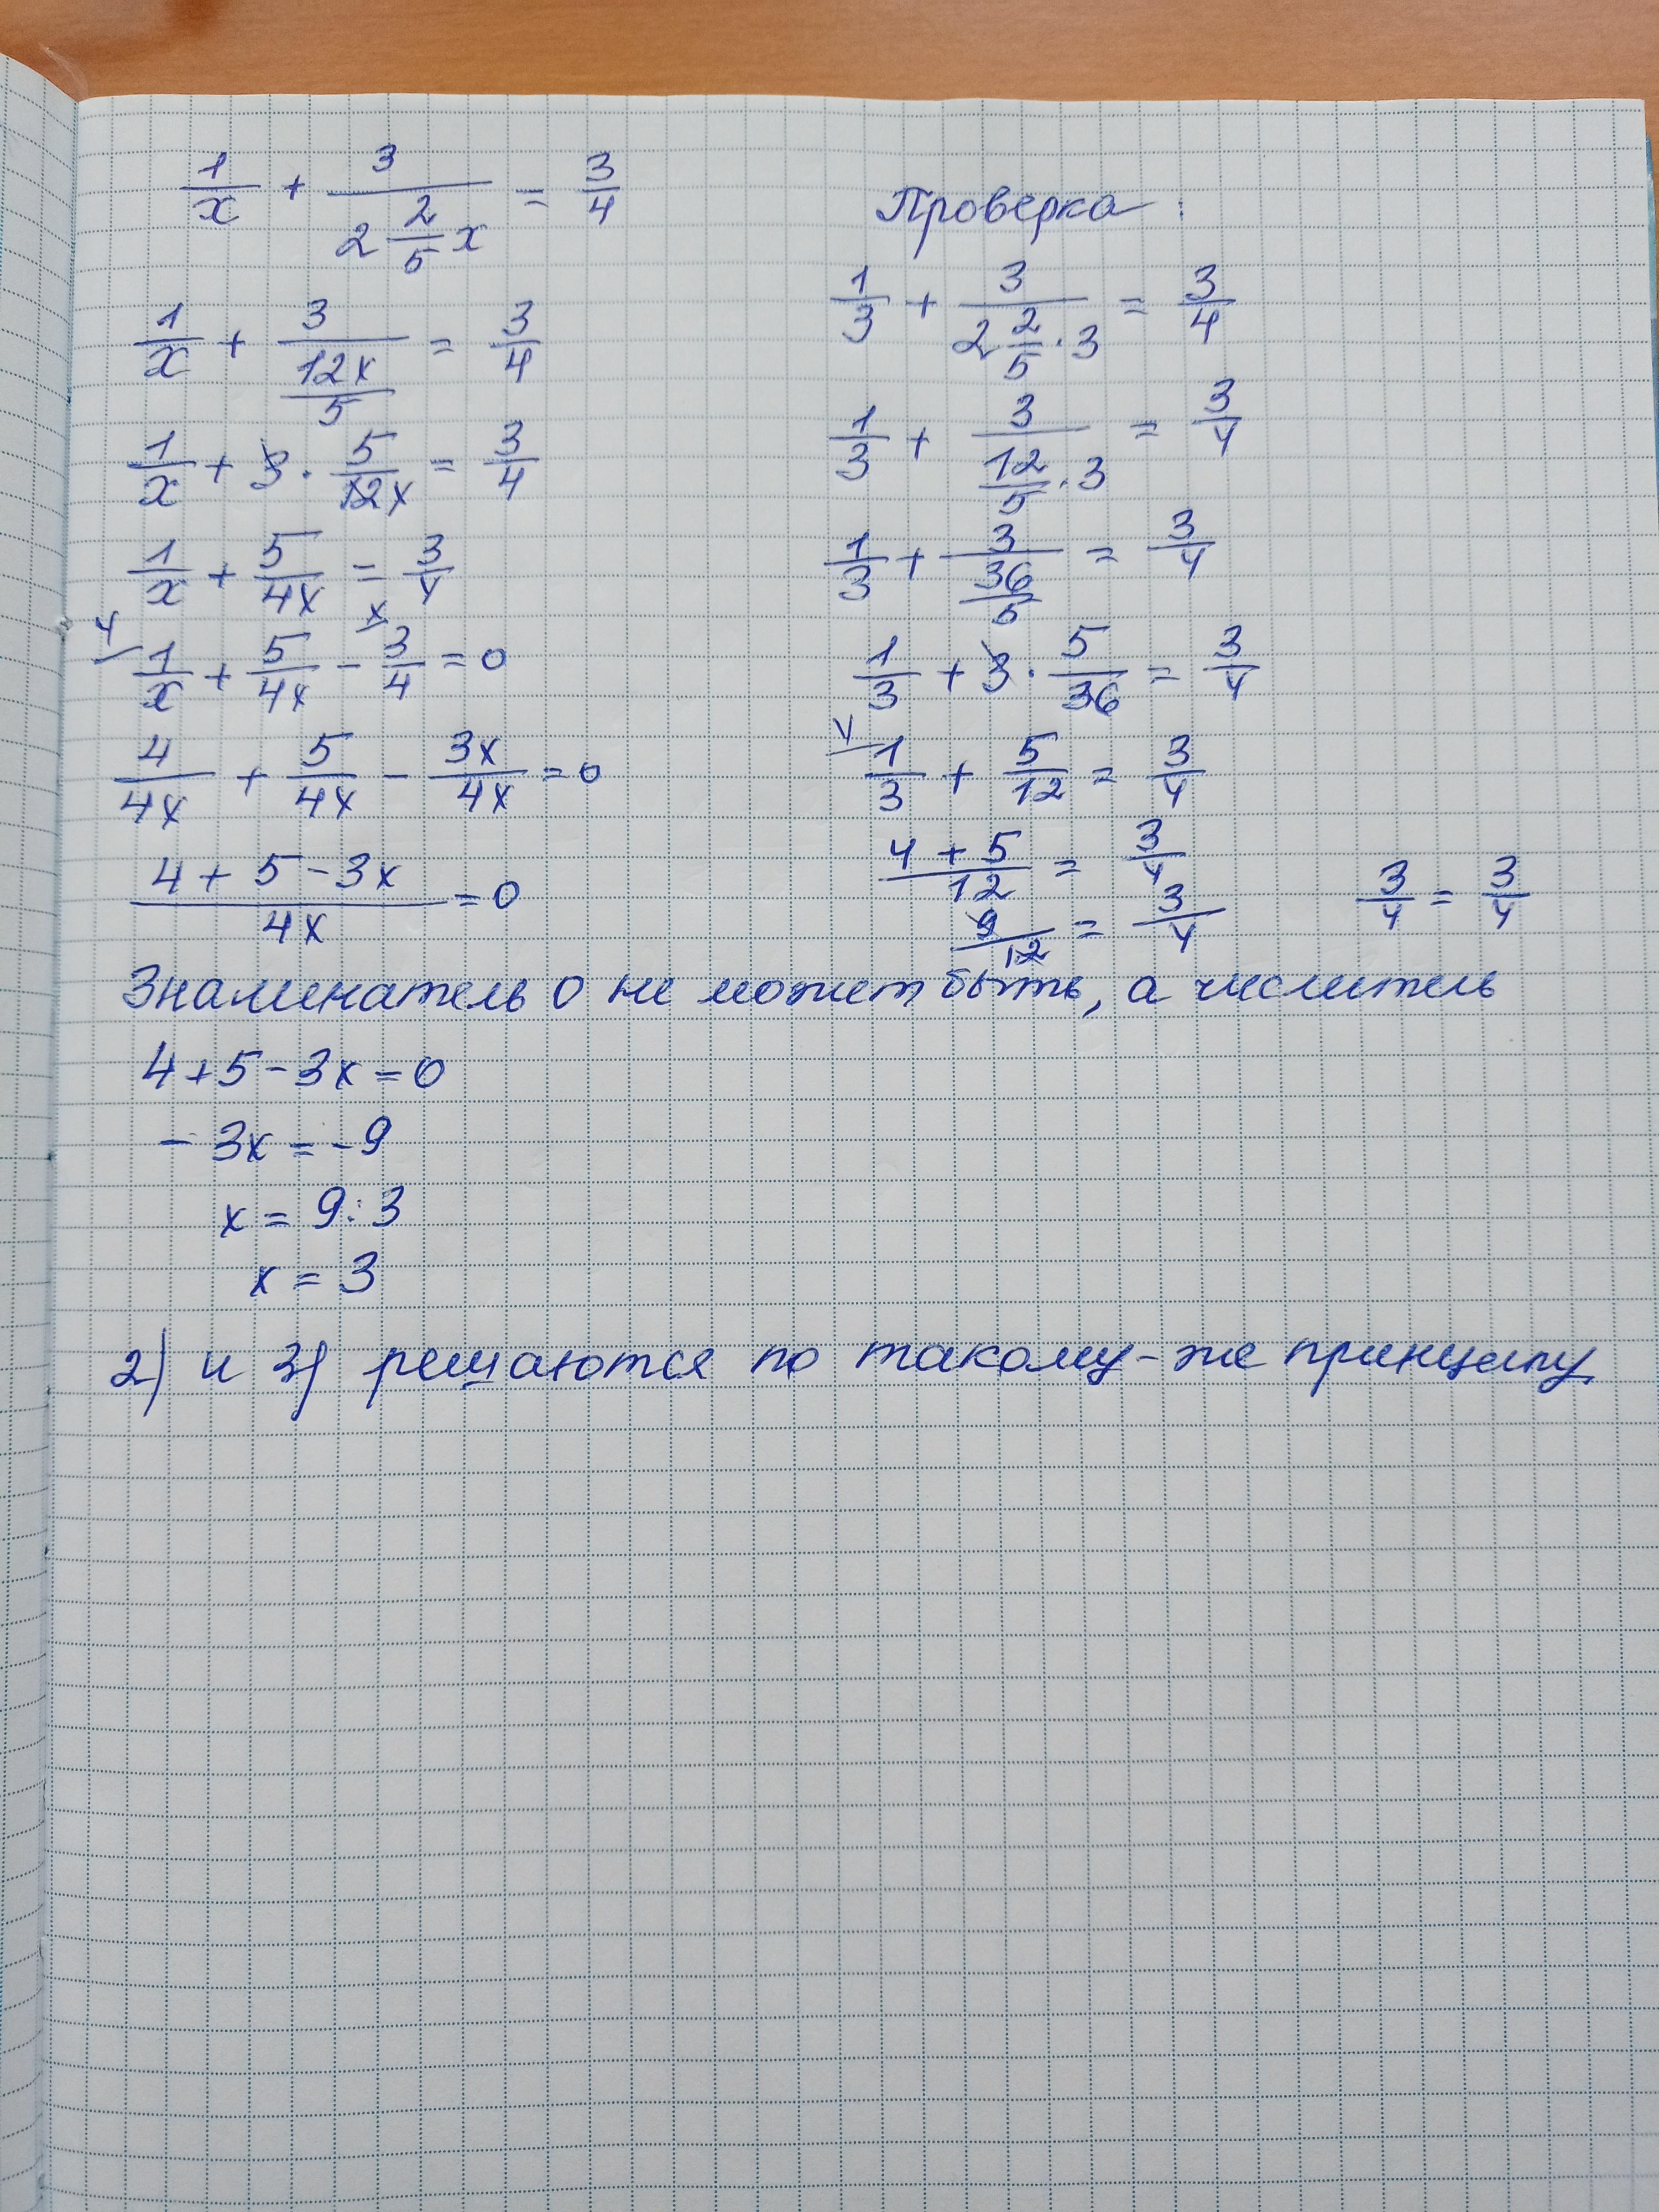 1/x + 3/(2 2/5 x) = 3/4
1/x + 3/(12x/5) = 3/4
1/x + 3 · 5/12x = 3/4
1/x + 5/4x = 3/4
4/ 1/x + 5/4x - x/ 3/4 = 0
4/4x + 5/4x - 3x/4x = 0
(4 + 5 - 3x)/4x = 0
Проверка:
1/3 + 3/(2 2/5 · 3) = 3/4
1/3 + 3/(12/5 · 3) = 3/4
1/3 + 3/(36/5) = 3/4
1/3 + 3 · 5/36 = 3/4
4/ 1/3 + 5/12 = 3/4
(4 + 5)/12 = 3/4
9/12 = 3/4
3/4 = 3/4
Знаминатель 0 не может быть, а числитель
4+5-3x=0
- 3x = -9
x = 9:3
x = 3
2) и 3) решаются по такому-же принципу